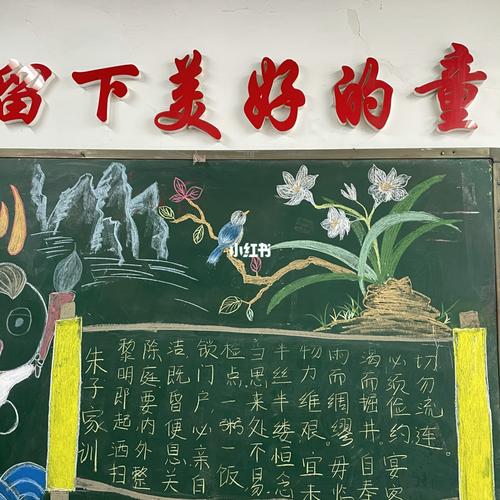 留下美好的童
小红书
朱子家训
黎明郎起,洒扫
除庭,要内外整
洁。既昏便息,关
锁门户,必亲自
检点。一粥一饭,
当思来处不易。
半丝半缕恒念
物力维艰。宜未
雨而绸缪,毋临
渴而掘井。自奉
必须俭约,宴客
切勿流连。